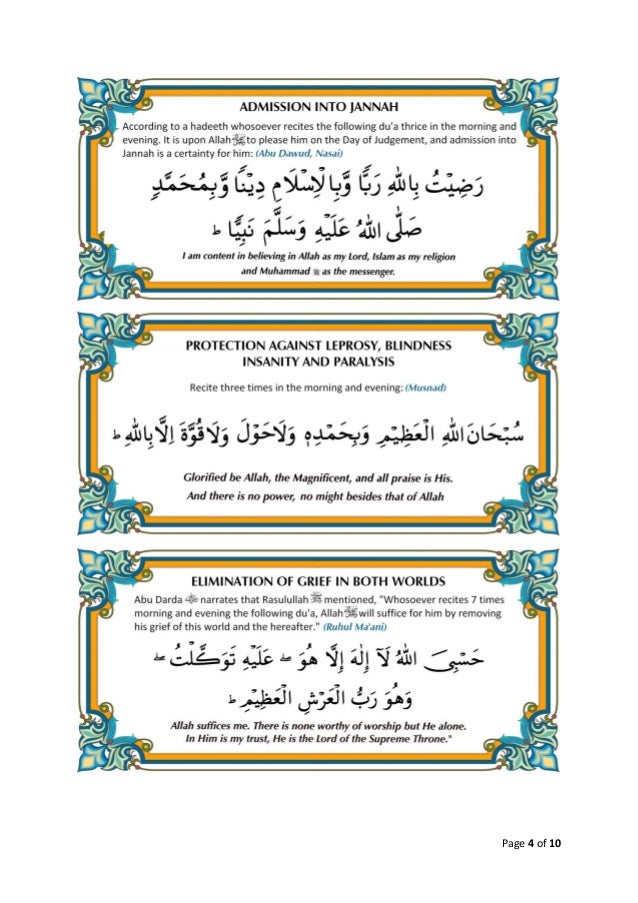 ADMISSION INTO JANNAH
According to a hadeeth whosoever recites the following du'a thrice in the morning and
evening. It is upon Allah ﷻ to please him on the Day of Judgement, and admission into
Jannah is a certainty for him: (Abu Dawud, Nasai)
رَضِيْتُ بِاللهِ رَبًّا وَّبِالْاِسْلَامِ دِيْنًا وَّبِمُحَمَّدٍ
صَلَّى اللهُ عَلَيْهِ وَسَلَّمَ نَبِيًّا ط
I am content in believing in Allah as my Lord, Islam as my religion
and Muhammad ﷺ as the messenger.
PROTECTION AGAINST LEPROSY, BLINDNESS
INSANITY AND PARALYSIS
Recite three times in the morning and evening: (Musnad)
سُبْحَانَ اللهِ الْعَظِيْمِ وَبِحَمْدِهٖ وَلَاحَوْلَ وَلَاقُوَّةَ اِلَّابِاللهِ ط
Glorified be Allah, the Magnificent, and all praise is His.
And there is no power, no might besides that of Allah
ELIMINATION OF GRIEF IN BOTH WORLDS
Abu Darda narrates that Rasulullah ﷺ mentioned, "Whosoever recites 7 times
morning and evening the following du'a, Allah ﷻ will suffice for him by removing
his grief of this world and the hereafter." (Ruhul Ma'ani)
حَسْبِيَ اللهُ لَآ إِلٰهَ إِلَّا هُوَ عَلَيْهِ تَوَكَّلْتُ
وَهُوَ رَبُّ الْعَرْشِ الْعَظِيْمِ ط
Allah suffices me. There is none worthy of worship but He alone.
In Him is my trust, He is the Lord of the Supreme Throne."
Page 4 of 10